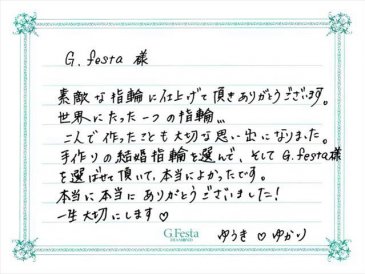 G.festa 様
素敵な指輪に仕上げて頂きありがとうございます。
世界にたった一つの指輪…
二人で作ったことも大切な思い出になりました。
手作りの結婚指輪を選んで、そしてG.festa様
を選ばせて頂いて、本当によかったです。
本当に本当にありがとうございました！
一生大切にします♡
G.Festa
ゆうき♡ゆかり